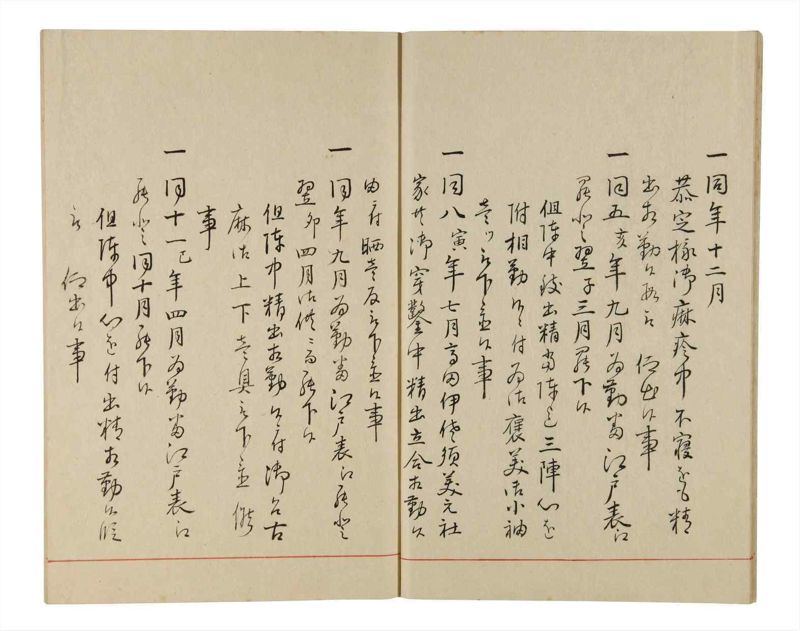 一同年十二月
恭定様御麻疹中不寝をも精
出相勤候段被 仰出候事
一同五亥年九月為勤番江戸表江
罷登翌子三月罷下候
但陣中殊出精當陣 三陣心を
附相勤候ニ付為御褒美御小袖
壱ツ被下置候事
一同八寅年七月高田伊佐須美元社
家共御穿鑿中精出立合相勤候
由ニ付晒壱反被下置候事
一同年九月為勤番江戸表江罷登
翌卯四月御供ニ而罷下候
但陣中精出相勤候ニ付御召古
麻御上下壱具被下置候
事
一同十一巳年四月為勤番江戸表江
罷登同十月罷下候
但陣中心を付出精相勤候段
被 仰出候事